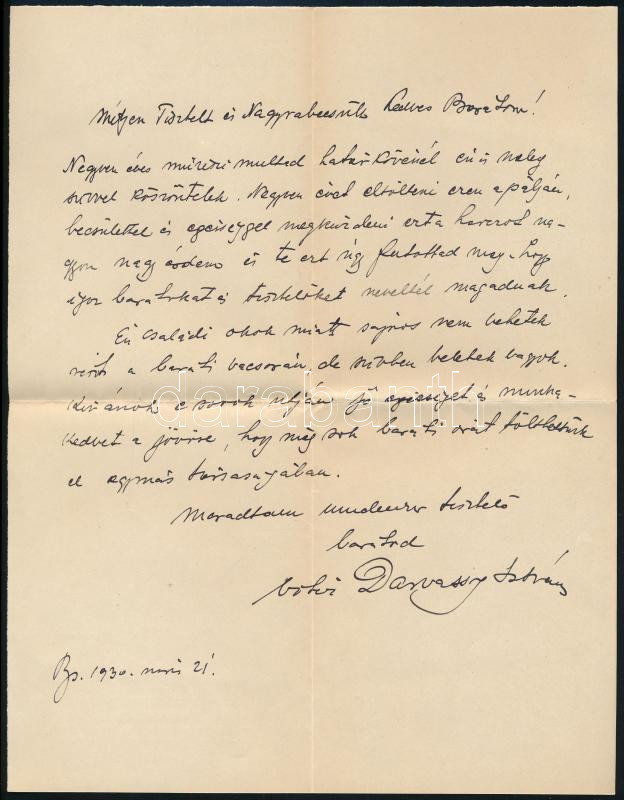 Mélyen Tisztelt és Nagyrabecsült kedves Barátom!
Negyven éves művészi multad határkövénél én is meleg
szivvel köszöntelek. Negyven évet eltölteni ezen a pályán,
becsülettel és egészséggel megküzdeni ezt a harcot na-
gyon nagy érdem és te ezt úgy futottad meg, hogy
igaz barátokat és tisztelőket neveltél magadnak.
Én családi okok miatt sajnos nem vehetek
részt a baráti vacsorán, de szivben veletek vagyok.
Kivánok e sorok utján jó egészséget és munka-
kedvet a jövőre, hogy még sok baráti órát tölthettünk
el egymás társaságában.
Maradtam mindenkor tisztelő
barátod
vitéz Darvassy István
Bp. 1930. 21.
darabanth